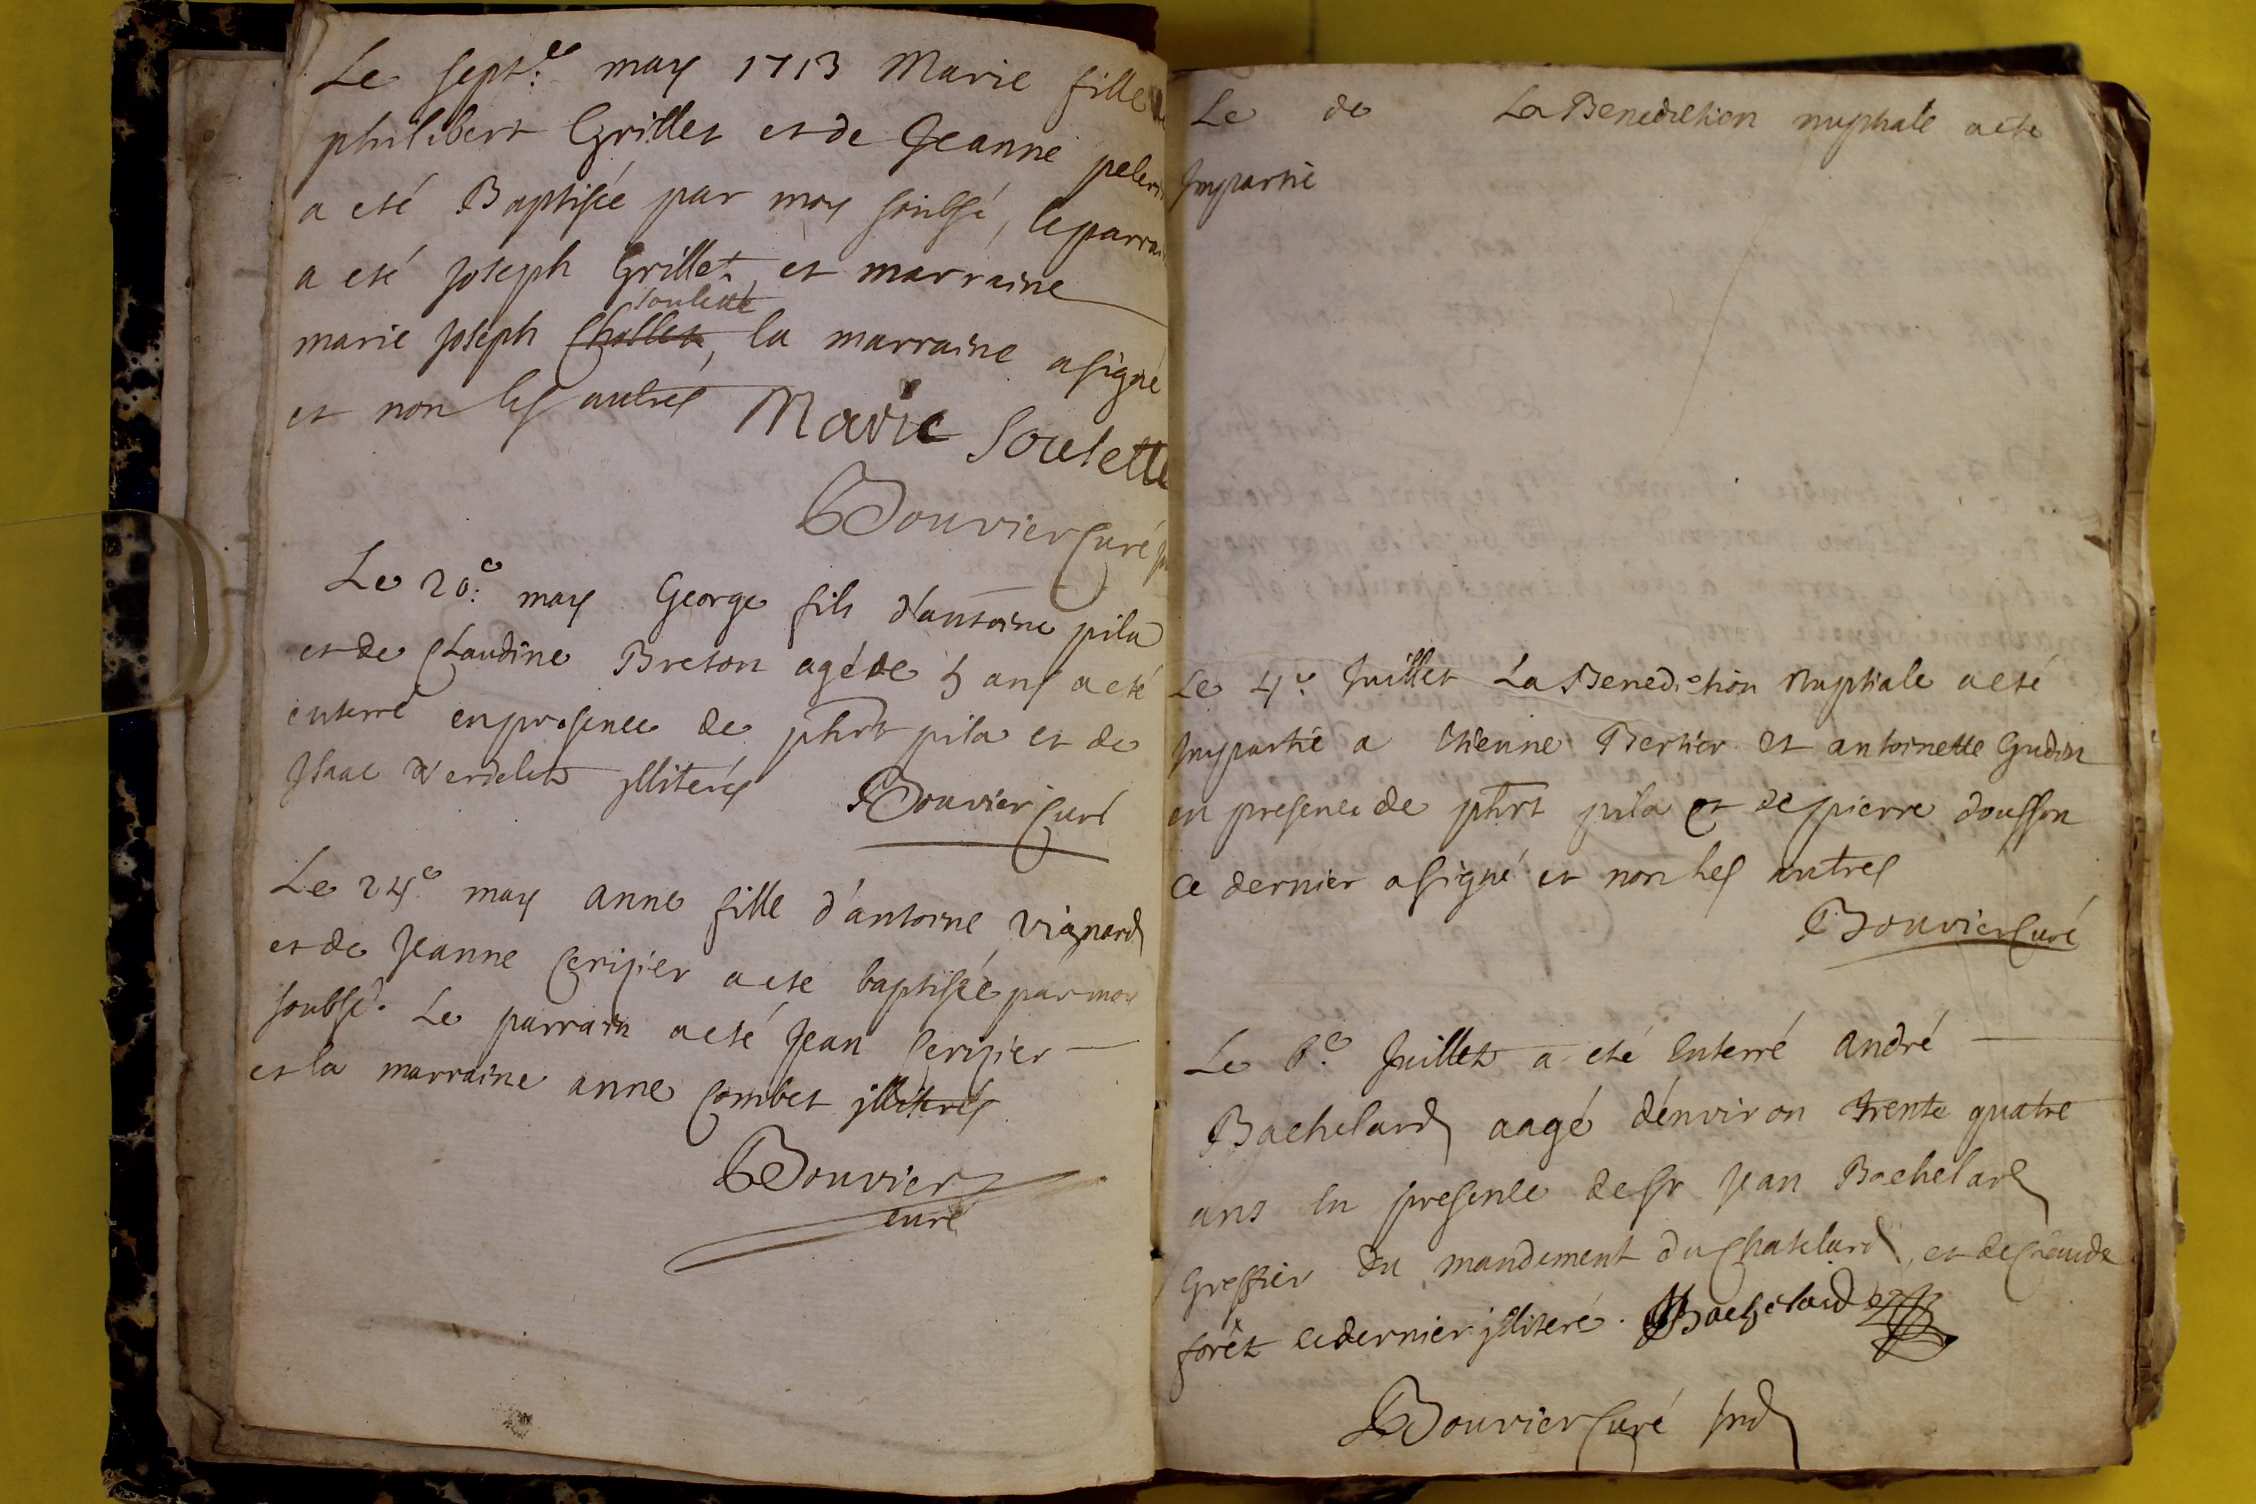 Le sept.e may 1713 Marie fille
philibert Grillet et de Jeanne peleri
a eté Baptisée par moy soubsé, le parra
a eté Joseph Grillet et marraine
soulette
marie Joseph Chollet, la marraine a signé
et non les autres Marie Soulette
Bouvier Curé
Le 20.e may George fils d'antoine pila
et de Claudine Breton agé de 5 ans a eté
enterré en presence de phrt pila et de
Isaac Verdelet illiterés Bouvier Curé
Le 24.e may anne fille d'antoine vignard
et de Jeanne Cerisier a eté baptisée par moy
soubsé. Le parrain a eté Jean Cerisier
et la marraine anne Combet illiterés
Bouvier
curé
Le de La Benediction nuptiale a eté
Impartie
Le 4.e Juillet La Benediction Nuptiale a eté
Impartie a Etienne Bertier et antoinette Gudin
en presence de phrt pila et de pierre dousson
ce dernier a signé et non les autres
Bouvier Curé
Le 6.e Juillet a eté Enterré André
Bachelard aagé d'énviron trente quatre
ans En presence de sr Jean Bachelard
Greffier du mandement du Chatelard, et de Claude
forêt ce dernier illiteré. Bachelard
Bouvier Curé